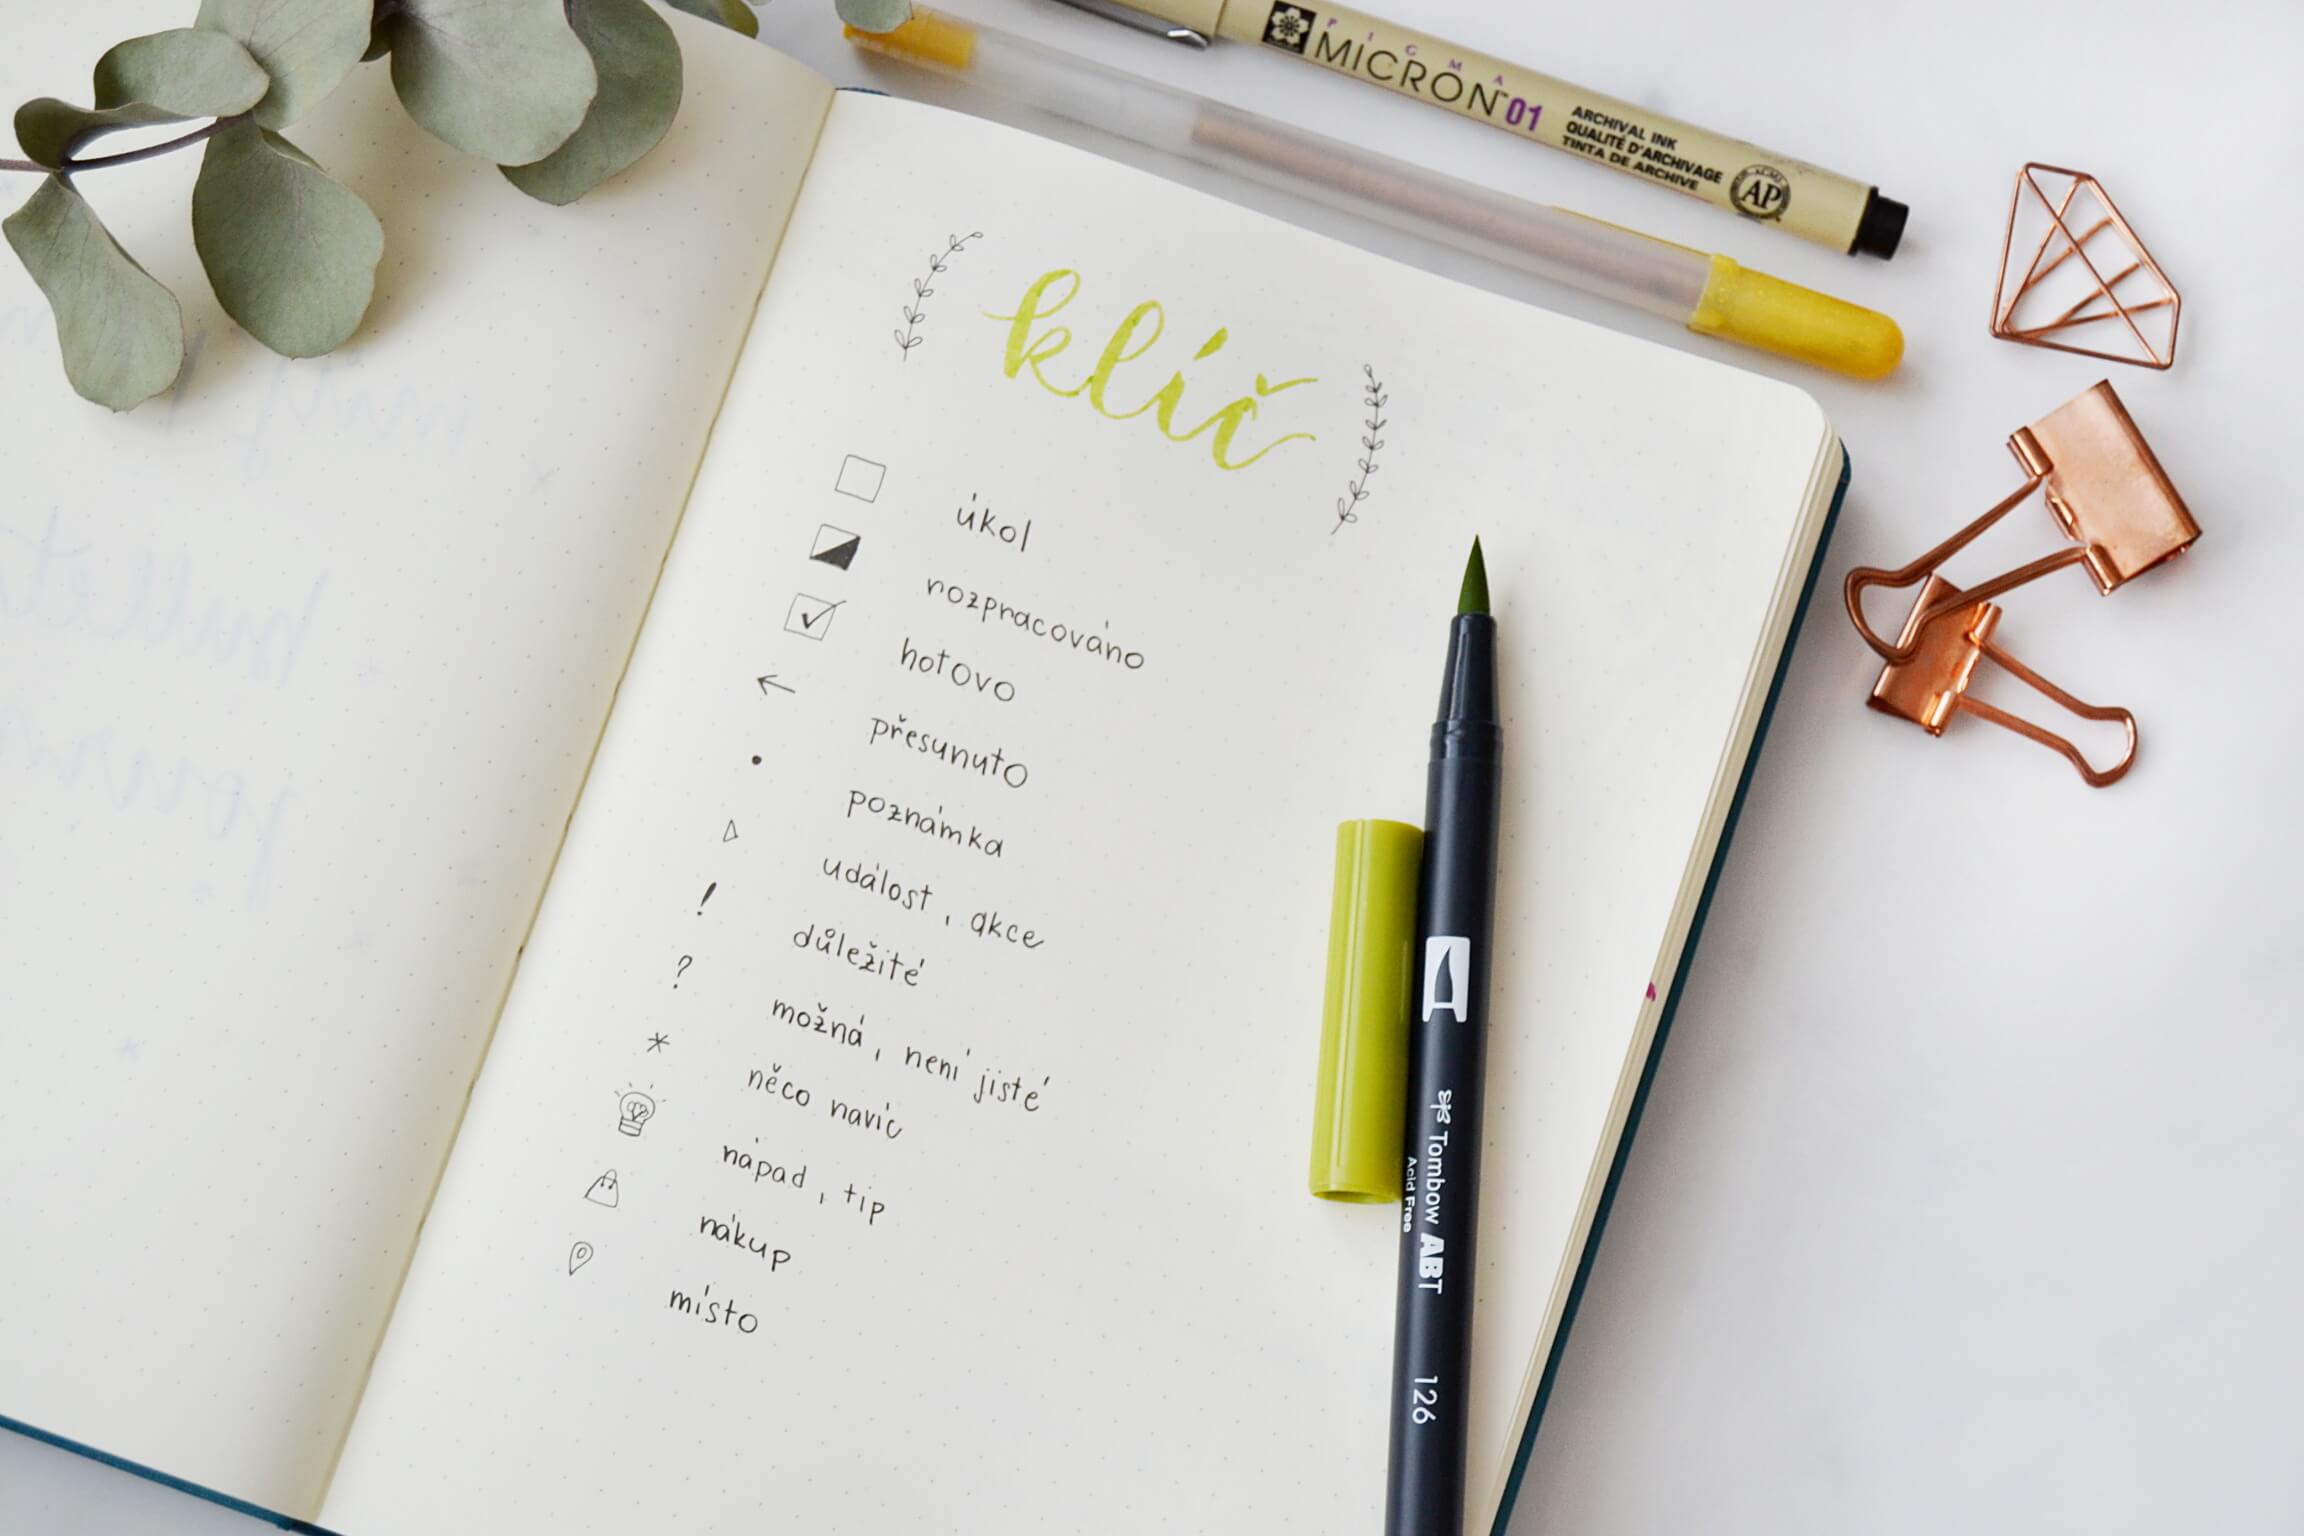 PIGMA
MICRON™ 01
ARCHIVAL INK
QUALITÉ D'ARCHIVAGE
TINTA DE ARCHIVE
AP
klíč
úkol
rozpracováno
hotovo
přesunuto
poznámka
událost, akce
důležité
možná, není jisté
něco navíc
nápad, tip
nákup
místo
Tombow ABT
Acid Free
126
bullet